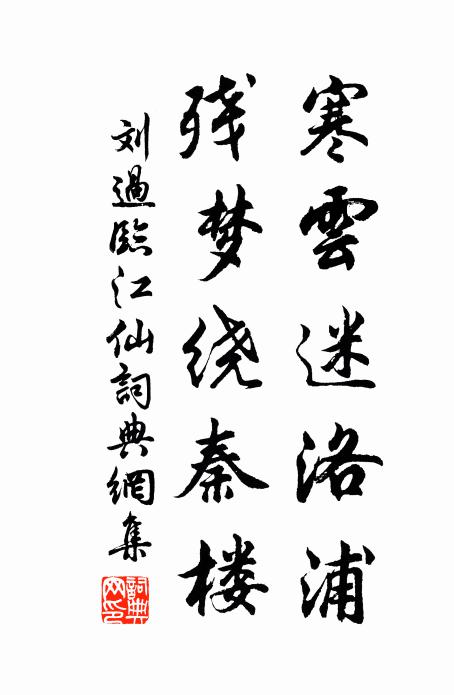 寒雲迷洛浦
残梦绕秦楼
刘過臨江仙詞典網集
詞典網印